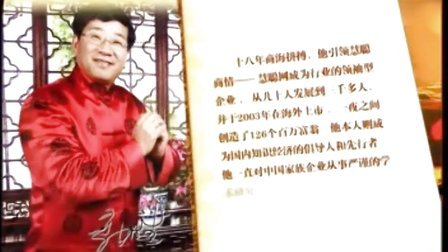 十八年商海拼搏，他引领慧聪
商情——慧聪网成为行业的领袖型
企业，从几十人发展到一千多人，
并于2003年在海外上市，一夜之间
创造了126个百万富翁，他本人则成
为国内知识经济的倡导人和先行者
他一直对中国家族企业从事严谨的学